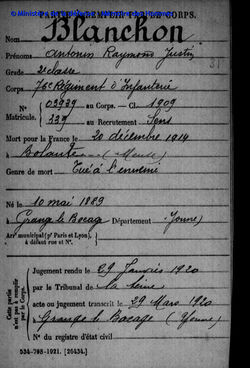 PARTIE À REMPLIR PAR LE CORPS.
Nom Blanchon
Prénoms Antonin Raymond Justin
Grade 2e classe
Corps 76e Régiment d'Infanterie
Matricule. 03939 au Corps. — Cl. 1909
139 au Recrutement Sens
Mort pour la France le 20 décembre 1914
à Bolante (Meuse)
Genre de mort Tué à l'ennemi
Né le 10 mai 1889
à Grange le Bocage Département Yonne
Arrt municipal (pr Paris et Lyon), à défaut rue et No.
Cette partie n'est pas à remplir par le Corps.
Jugement rendu le 29 Janvier 1920
par le Tribunal de la Seine
acte ou jugement transcrit le 29 Mars 1920
à Grange le Bocage (Yonne)
No du registre d'état civil
534-708-1921. [26434.]